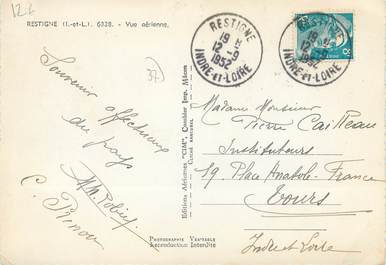 12-6
RESTIGNÉ (I.-et-L.) 6328. - Vue aérienne.
37
Souvenir
affectueux
du pays
C. Renou
Editions Aériennes "CIM", Combier Imp. Mâcon
CLICHÉ
PHOTOGRAPHIE VÉRITABLE
Reproduction Interdite
RESTIGNÉ
19 H
12 -9
1952
INDRE-ET-LOIRE
RESTIGNÉ
19 H
12 -9
1952
INDRE-ET-LOIRE
Madame Monsieur
Pierre Cailleau
Instituteurs
19. Place Anatole-France
Tours
Indre et Loire